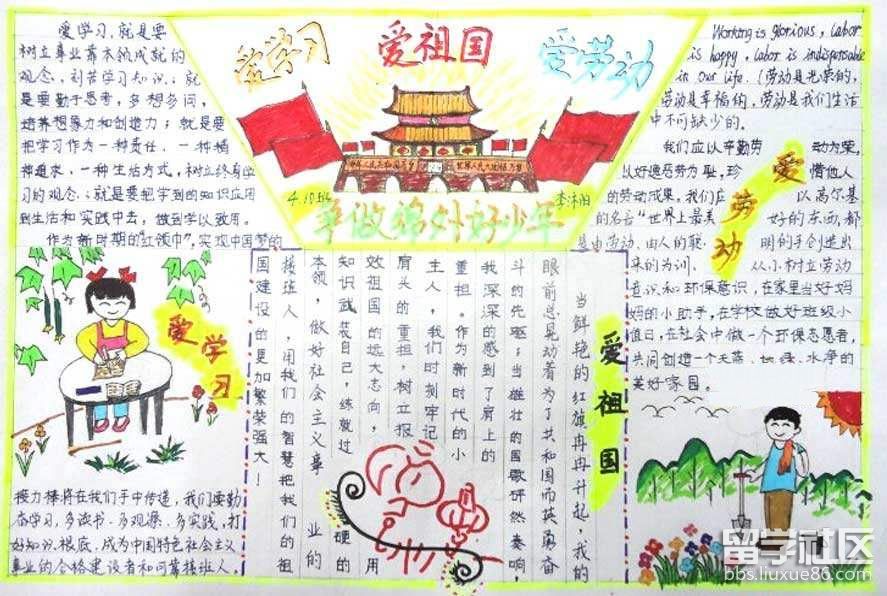 爱学习
爱祖国
爱劳动
4.10班
争做锦外好少年
爱学习,就是要
树立事业靠本领成就的
观念,刻苦学习知识;就
是要勤于思考,多想多问,
培养想象力和创造力;就是要
把学习作为一种责任、一种精
神追求、一种生活方式,树立终身学
习的观念;就是要把学到的知识应用
到生活和实践中去,做到学以致用。
作为新时期的“红领巾”,实现中国梦的
爱学习
接力棒将在我们手中传递,我们要勤
奋学习,多读书、多观察、多实践,打
好知识根底,成为中国特色社会主义
事业的合格建设者和可靠接班人。
爱祖国
当鲜艳的红旗冉冉升起,我的
眼前总晃动着为了共和国而英勇奋
斗的先驱;当雄壮的国歌砰然奏响,
我深深的感到了肩上的
重担。作为新时代的小
主人,我们时刻牢记
肩头的重担,树立报
效祖国的远大志向,用
知识武装自己,练就过硬的
本领,做好社会主义事业的
接班人,用我们的智慧把我们的祖
国建设的更加繁荣强大!
Working is glorious, labor
is happy, labor is indispensable
in our life.(劳动是光荣的,
劳动是幸福的,劳动是我们生活
中不可缺少的。
我们应以辛勤劳动为荣,
以好逸恶劳为耻,珍惜他人
的劳动成果。我们应以高尔基
的名言“世界上最美好的东西,都
是由劳动、由人的聪明的手创造出
来的为训、从小树立劳动
意识和环保意识,在家里当好妈
妈的小助手,在学校做好班级小
值日,在社会中做一个环保志愿者,
共同创造一个天蓝、地绿、水净的
美好家园。
爱劳动
留学社区
bbs.liuxue86.com